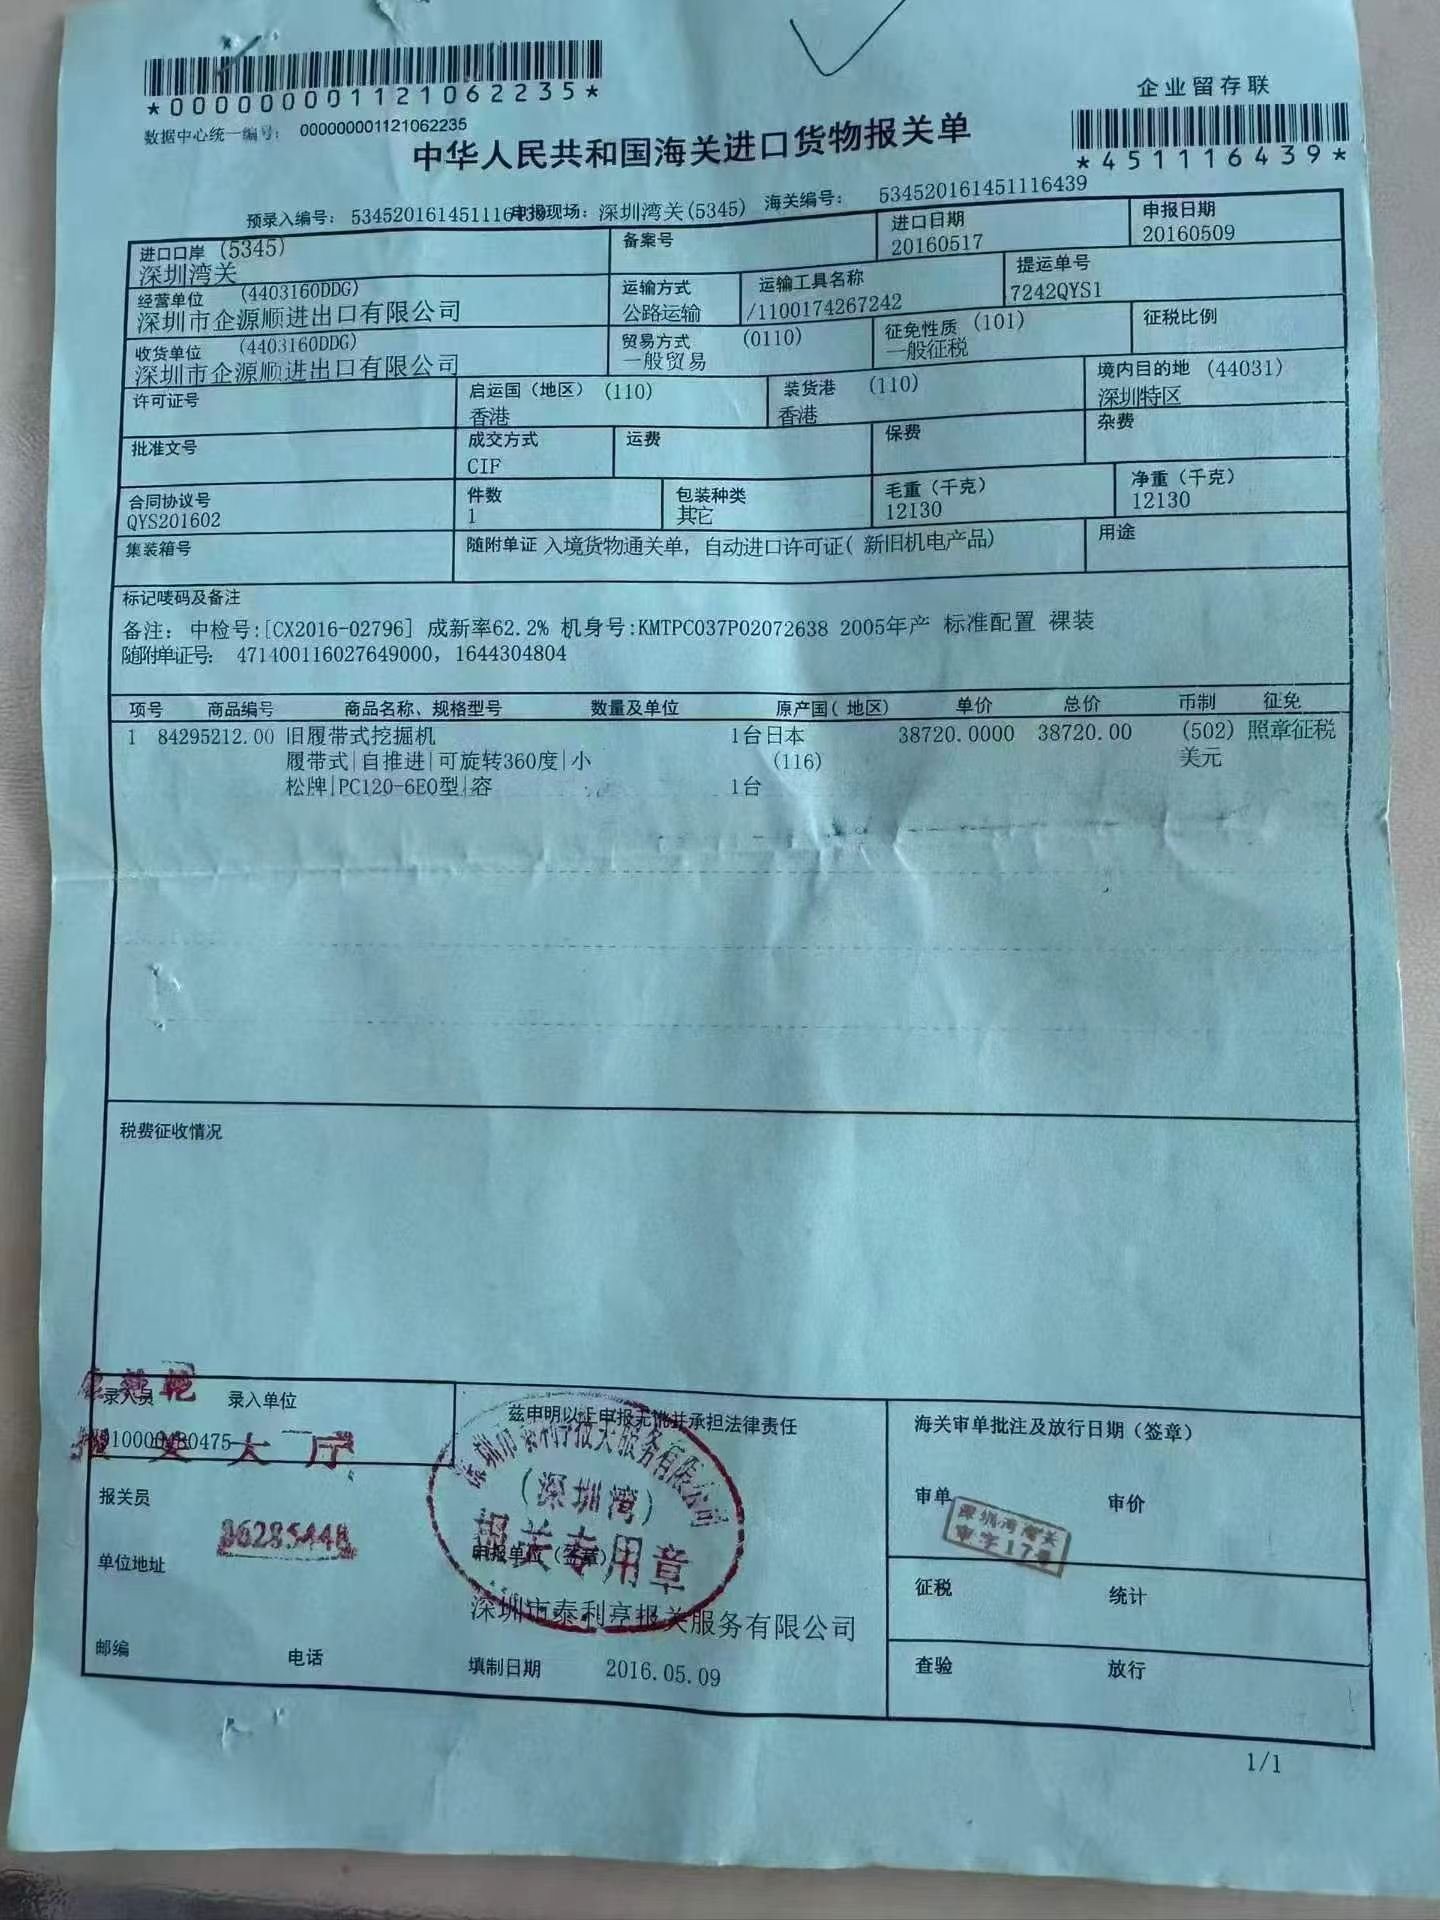 *000000001121062235*
企业留存联
数据中心统一编号: 000000001121062235
*451116439*
中华人民共和国海关进口货物报关单
预录入编号: 534520161451116439 申报现场: 深圳湾关(5345) 海关编号: 534520161451116439
进口口岸 (5345) 备案号 进口日期 申报日期
深圳湾关 20160517 20160509
经营单位 (4403160DDG) 运输方式 运输工具名称 提运单号
深圳市企源顺进出口有限公司 公路运输 /1100174267242 7242QYS1
收货单位 (4403160DDG) 贸易方式 (0110) 征免性质 (101) 征税比例
深圳市企源顺进出口有限公司 一般贸易 一般征税
许可证号 启运国（地区） (110) 装货港 (110) 境内目的地 (44031)
香港 香港 深圳特区
批准文号 成交方式 运费 保费 杂费
CIF
合同协议号 件数 包装种类 毛重（千克） 净重（千克）
QYS201602 1 其它 12130 12130
集装箱号 随附单证 入境货物通关单, 自动进口许可证( 新旧机电产品) 用途
标记唛码及备注
备注: 中检号:[CX2016-02796] 成新率62.2% 机身号:KMTPC037P02072638 2005年产 标准配置 裸装
随附单证号: 471400116027649000, 1644304804
项号 商品编号 商品名称、规格型号 数量及单位 原产国( 地区) 单价 总价 币制 征免
1 84295212.00 旧履带式挖掘机 1台 日本 38720.0000 38720.00 (502) 照章征税
履带式|自推进|可旋转360度|小 (116) 美元
松牌|PC120-6E0型|容 1台
税费征收情况
录入员 录入单位
兹申明以上申报无讹并承担法律责任
海关审单批注及放行日期（签章）
大厅
深圳市泰利亨报关服务有限公司
(深圳湾)
报关专用章
报关员
86285448
审单 审价
深圳湾海关
审字17号
申报单位（签章）
单位地址
深圳市泰利亨报关服务有限公司
征税 统计
邮编 电话 填制日期 2016.05.09
查验 放行
1/1